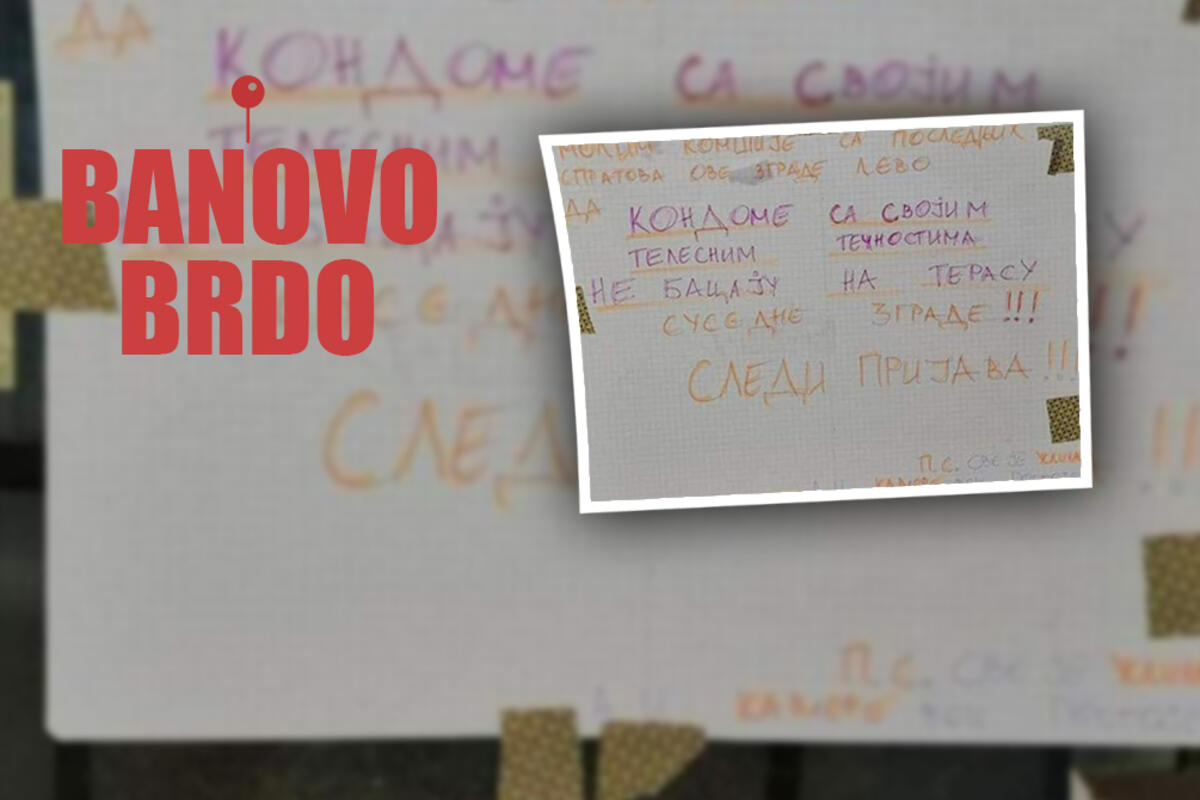 BANOVO
BRDO
МОЛИМ КОМШИЈЕ СА ПОСЛЕДЊИХ
СПРАТОВА ОВЕ ЗГРАДЕ ЛЕВО
ДА КОНДОМЕ СА СВОЈИМ
ТЕЛЕСНИМ ТЕЧНОСТИМА
НЕ БАЦАЈУ НА ТЕРАСУ
СУСЕДНЕ ЗГРАДЕ!!!
СЛЕДИ ПРИЈАВА!!!
П.С. СВЕ ЈЕ
ДА
КОНДОМЕ СА СВОЈИМ
СЛЕД
П.С. СВЕ ЈЕ